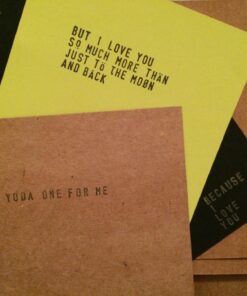 BUT I LOVE YOU
SO MUCH MORE THAN
JUST TO THE MOON
AND BACK
YODA ONE FOR ME
BECAUSE
I
LOVE
YOU